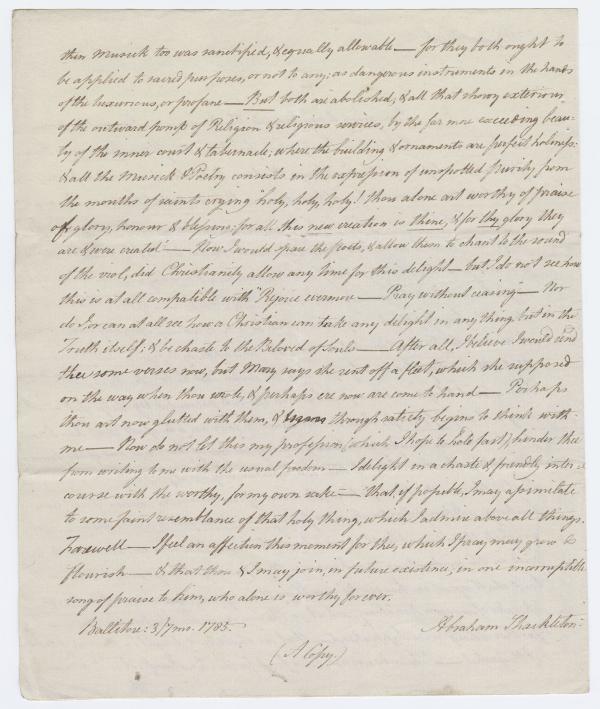 then Musick too was sanctified, & equally allowable — for they both ought to
be applied to sacred purposes, or not to any; as dangerous instruments in the hands
of the luxurious, or profane — But both are abolished, & all that showy exteriour
of the outward pomp of Religion & religious services, by the far more exceeding beau-
ty of the inner court & tabernacle; where the building & ornaments are perfect holiness:
& all the Musick & Poetry consists in the expression of unspotted purity, from
the mouths of saints crying "holy, holy, holy! thou alone art worthy of praise
of glory, honour & blessing: for all this new creation is thine, & for thy glory they
are & were created" — Now I would spare the poets, & allow them to chant to the sound
of the viol, did Christianity allow any time for this delight — but I do not see how
this is at all compatible with "Rejoice evermore — Pray without ceasing" — Nor
do I, or can at all see how a Christian can take any delight in any thing but in the
Truth itself; & be chaste to the Beloved of Souls — After all, I believe I would send
thee some verses now, but Mary says she sent off a fleet, which she supposed
on the way when thou wrote, & perhaps ere now are come to hand — Perhaps
thou art now glutted with them, & through satiety begins to think with
me — Now do not let this my profession (which I hope to hold fast) hinder thee
from writing to me with the usual freedom — I delight in a chaste & friendly inter-
course with the worthy, for my own sake — that, if possible, I may assimilate
to some faint resemblance of that holy thing, which I admire above all things.
Farewell — I feel an affection this moment for thee, which I pray may grow &
flourish — & that thou & I may join, in future existence, in one incorruptible
song of praise to him, who alone is worthy forever.
Ballitore: 3/7mo. 1783. Abraham Shackleton
(A Copy)